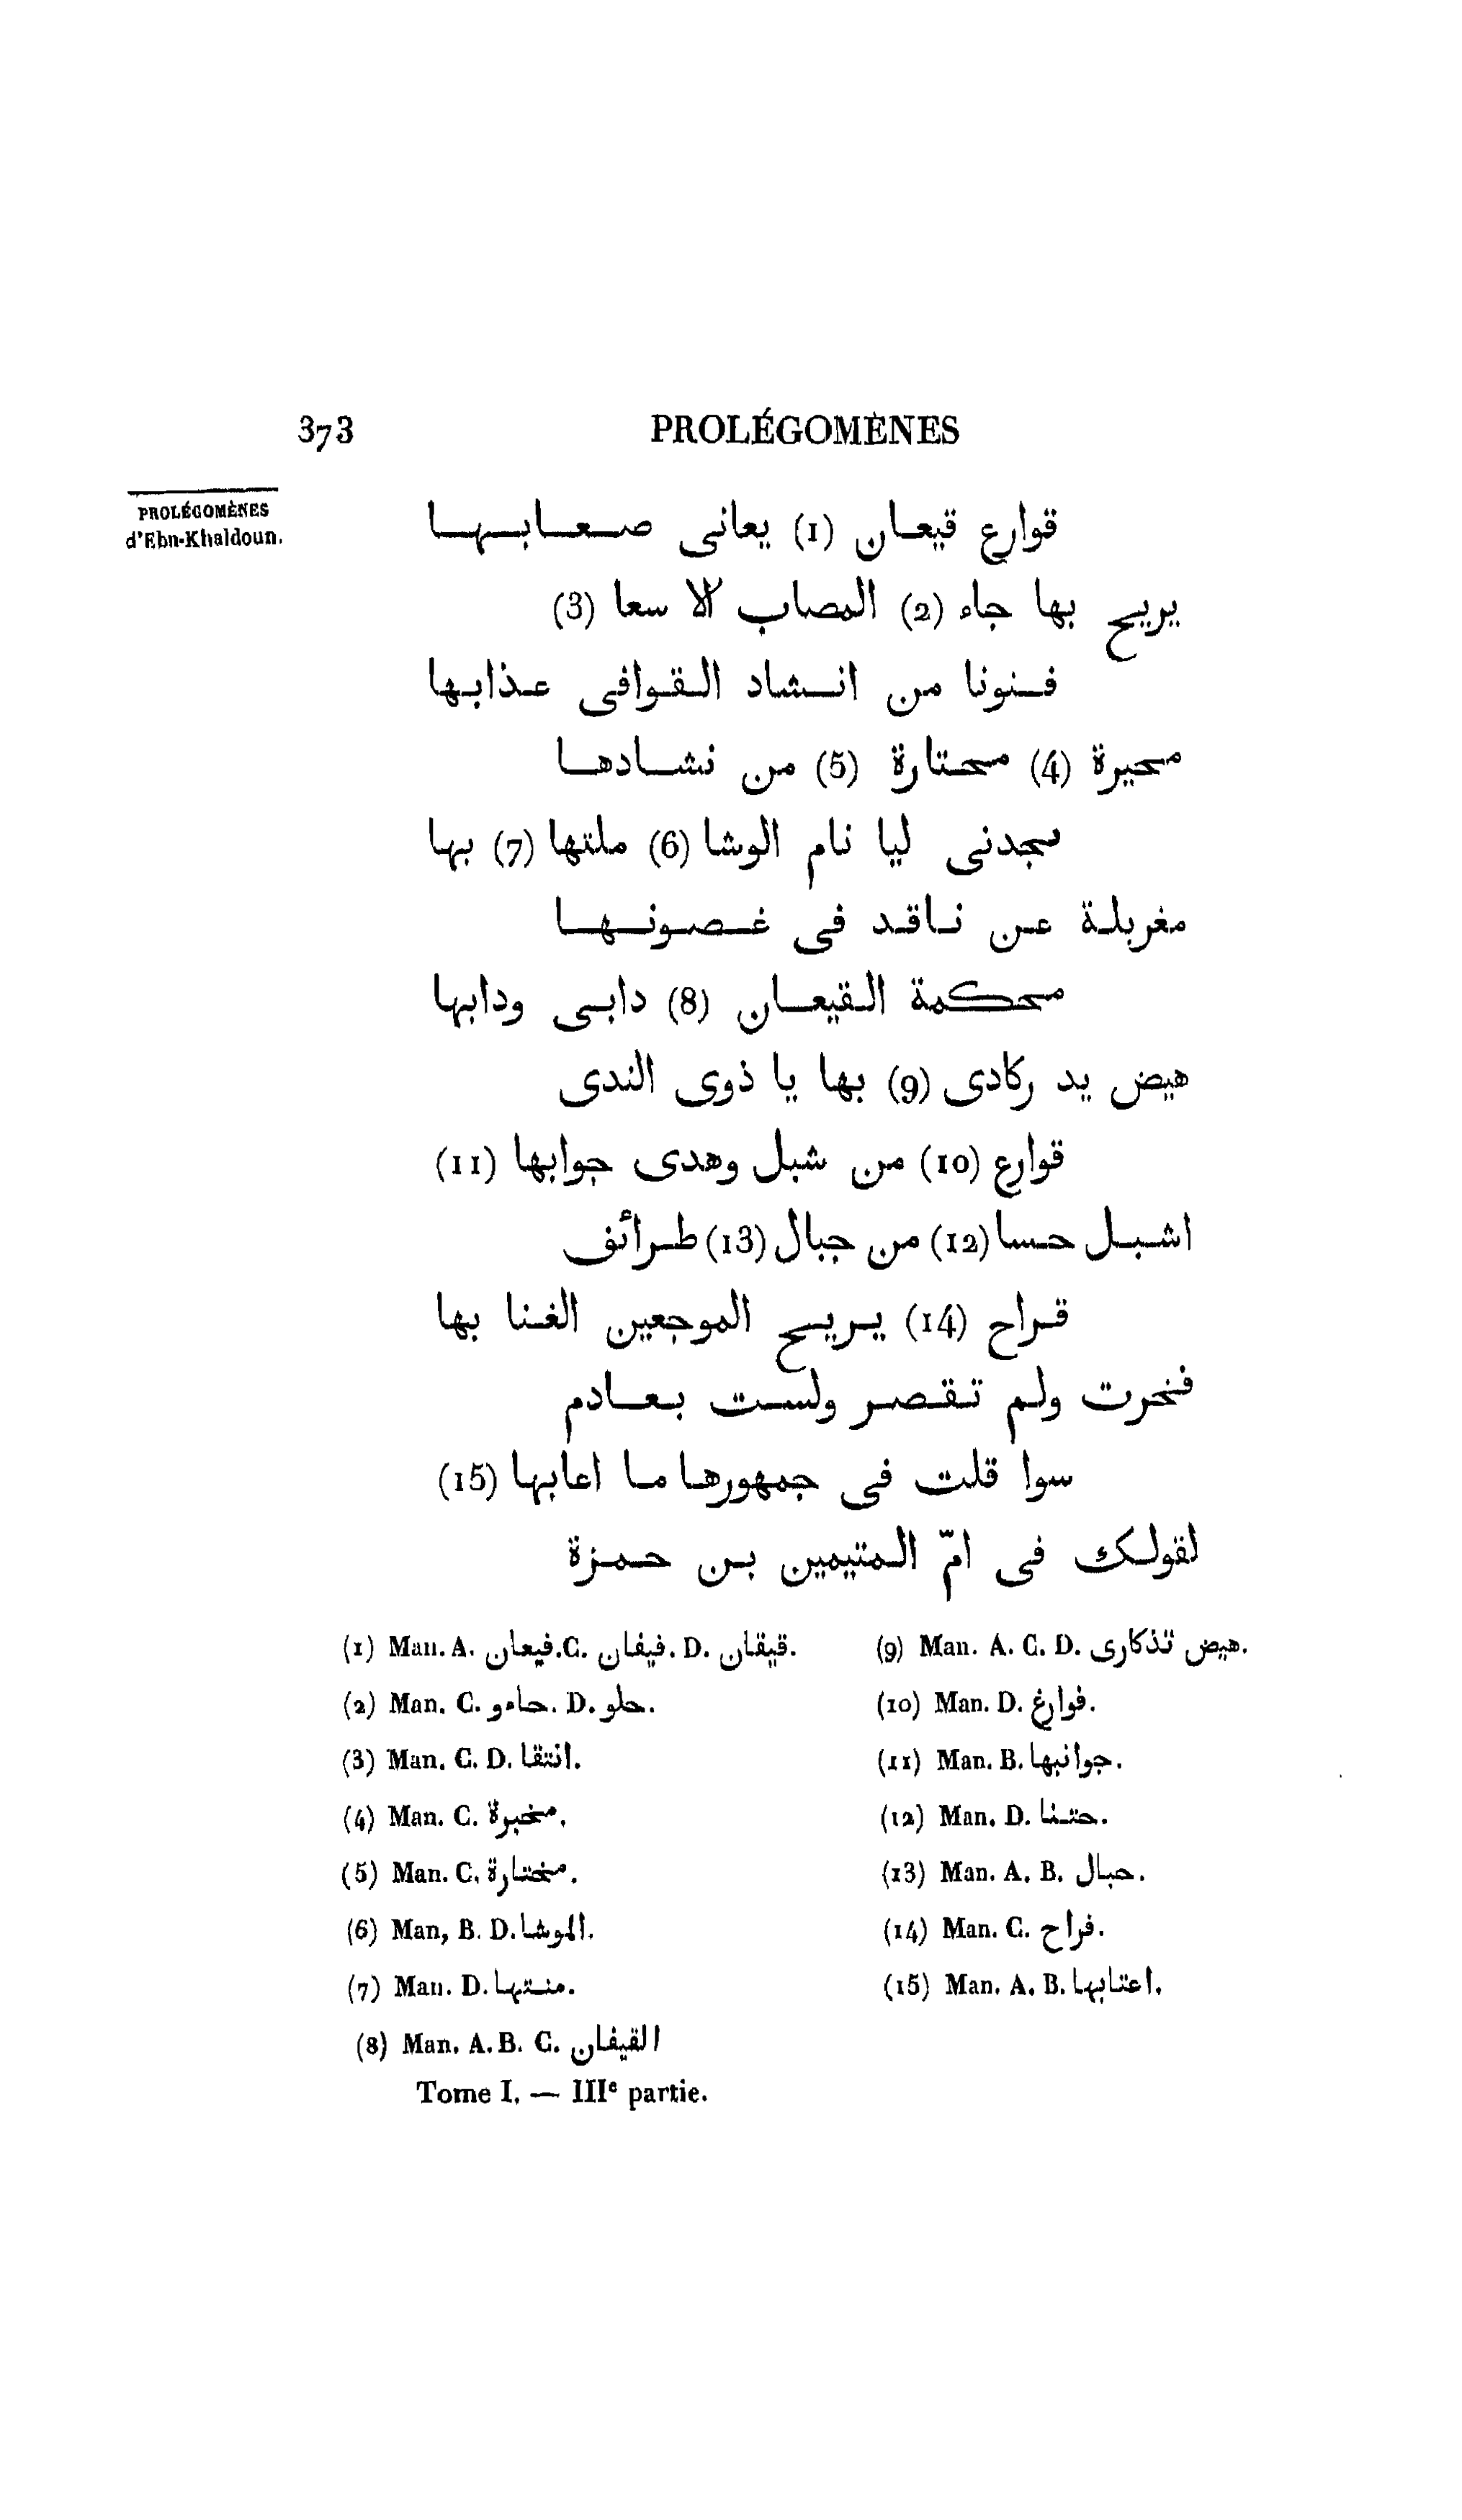 373 PROLÉGOMÈNES
PROLÉGOMÈNES
d'Ebn-Khaldoun.
قوارع قيعان (1) يعانى صعابها
يريح بها جاء (2) المصاب الا سعا (3)
فنونا من انشاد القوافى عذابها
محيرة (4) محتارة (5) من نشادها
سجدنى ليا نام الوشا (6) ملتها (7) بها
مغربلة عن ناقد فى غصونها
محكمة القيعان (8) دابى ودابها
هيض يد ركادى (9) بها يا ذوى الندى
قوارع (10) من شبل وهدى جوابها (11)
اشبل حسا (12) من جبال (13) طرائف
قراح (14) يريح الموجعين الغنا بها
فنحرت ولم تقصر ولست بعادم
سوا قلت فى جمهورها ما اعابها (15)
لقولك فى امّ المتيمين بن حمزة
(1) Man. A. فيعان. C. فيفان. D. قيقان.
(2) Man. C. حاءو. D. حلو.
(3) Man. C. D. انتقا.
(4) Man. C. مخبرة.
(5) Man. C. مختارة.
(6) Man, B. D. الموشا.
(7) Man. D. منتها.
(8) Man. A. B. C. القيفان
(9) Man. A. C. D. هيض تذكارى.
(10) Man. D. فوارغ.
(11) Man. B. جوانبها.
(12) Man. D. حتنا.
(13) Man. A. B. حبال.
(14) Man. C. فراح.
(15) Man. A. B. اعتابها.
Tome I. — IIIe partie.